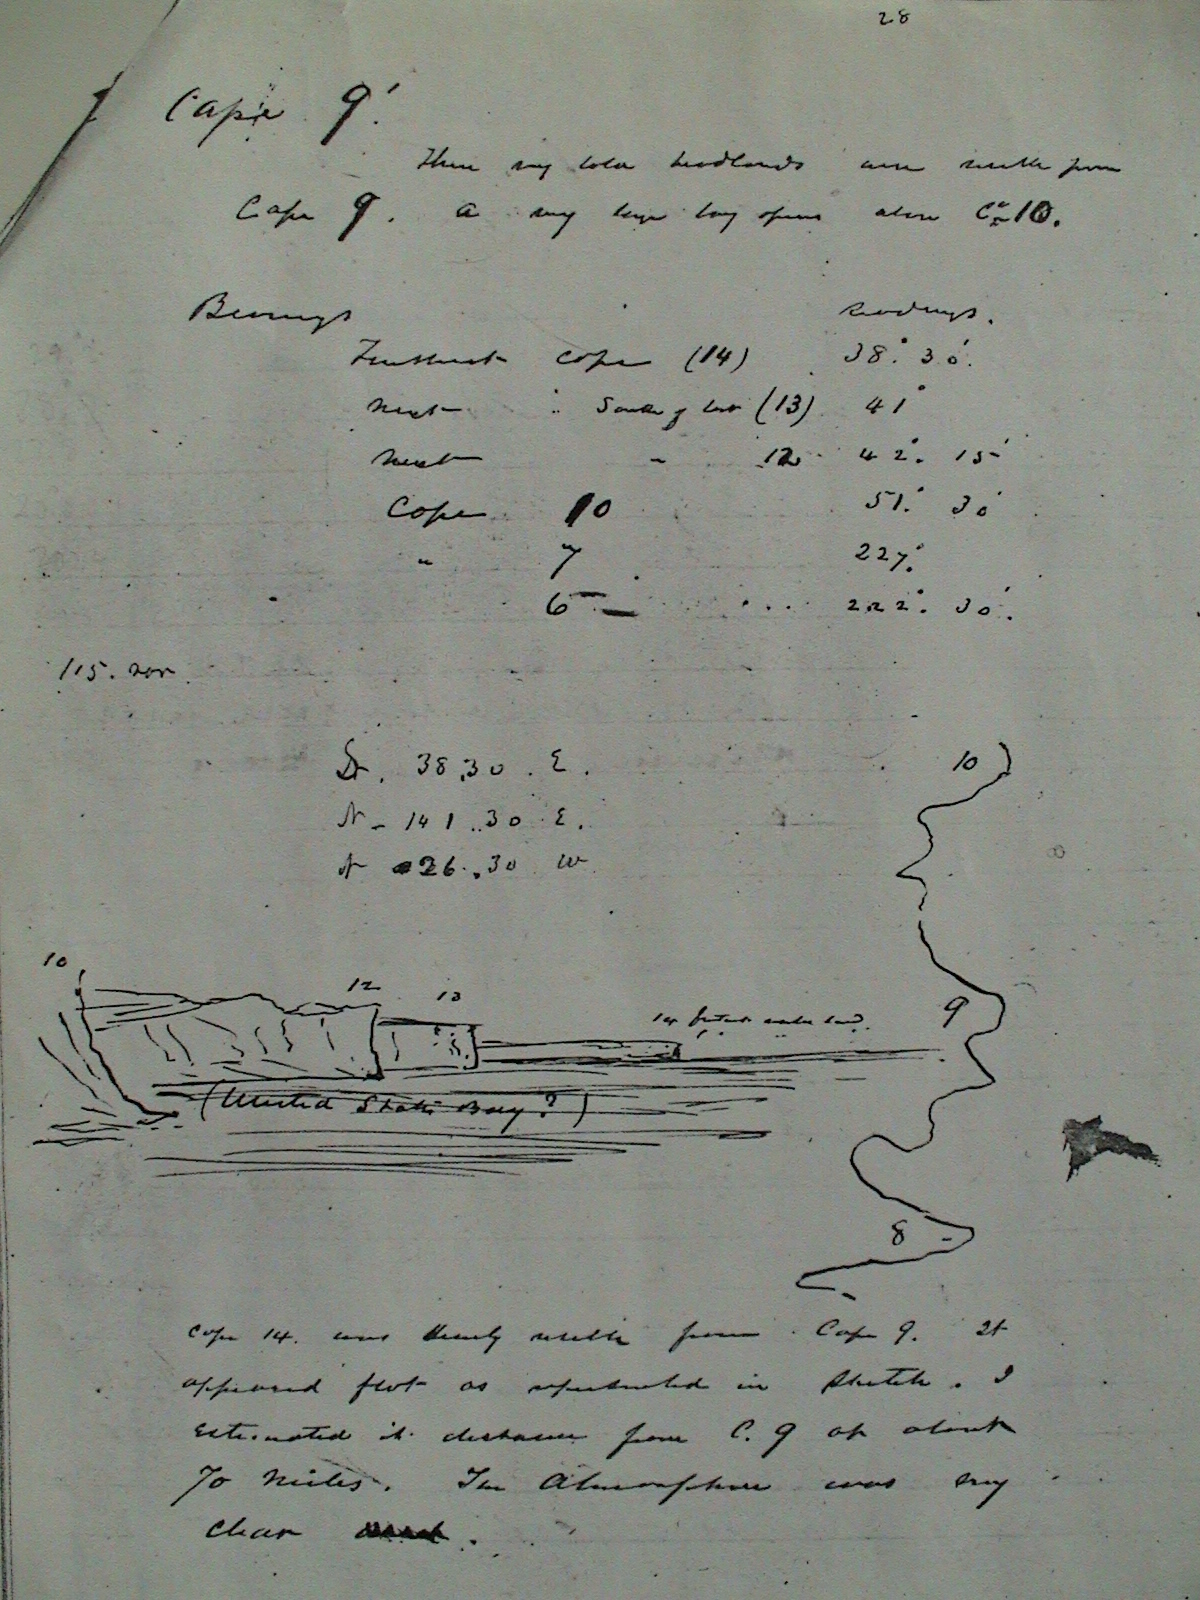 28
Cape 9.
Three very bold headlands were visible from
Cape 9. A very large bay opens above Ce 10.
Bearings Readings.
Furthest Cape (14) 38° 30'
next " South of last (13) 41°
next " 12 42° 15'
Cape 10 51° 30'
" 7 227°
6 222° 30'
115. var
38,30 E.
N - 141.30 E.
N 26.30 W
10
10
12
13
14 furthest visible land.
9
(United States Bay?)
8
Cape 14 was dimly visible from Cape 9. It
appeared flat as represented in sketch. I
estimated its distance from C. 9 at about
70 miles. The Atmosphere was very
clear